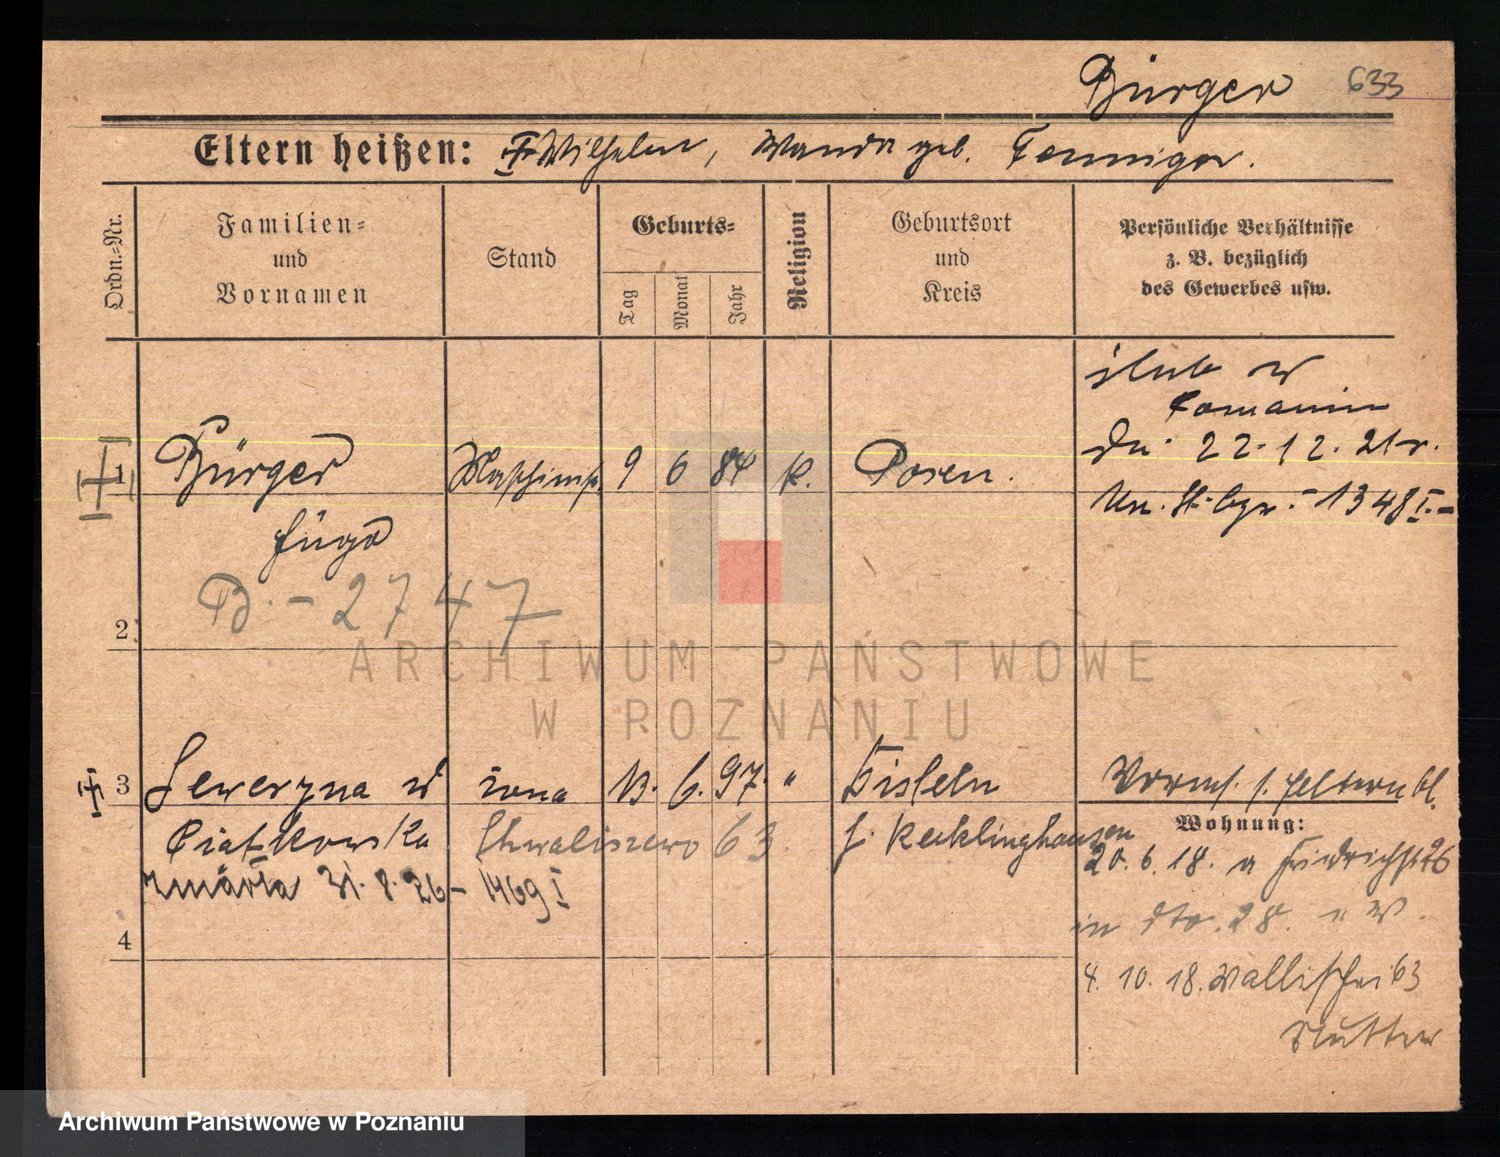 Bürger 633
Eltern heißen: Wilhelm, Wanda geb.
Ordn.-Nr.
Familien-
und
Vornamen
Stand
Geburts-
Tag
Monat
Jahr
Religion
Geburtsort
und
Kreis
Persönliche Verhältnisse
z. B. bezüglich
des Gewerbes usw.
ślub w
1 Bürger 9 6 84 K. Posen.
22.12.21 r.
1348 I.-
Hugo
B. - 2747
2
ARCHIWUM PAŃSTWOWE
W POZNANIU
3 Seweryna żona 13. 6. 97. "
Wohnung:
Piątkowska Chwaliszewo 63 Recklinghausen
20. 6. 18. Friedrichst 26
zmarła 31. 8. 26 - 1469 I
28.
4
4. 10. 18. Wallischei 63
Mutter
Archiwum Państwowe w Poznaniu